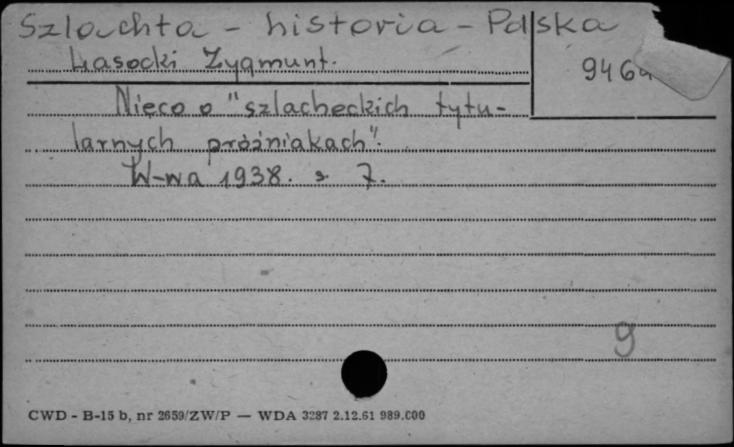 Szlachta - historia - Polska
Lasocki Zygmunt.
Nieco o "szlacheckich tytu-
larnych próżniakach".
W-wa 1938. s 7.
9
CWD - B-15 b, nr 2659/ZW/P — WDA 3287 2.12.61 989.000